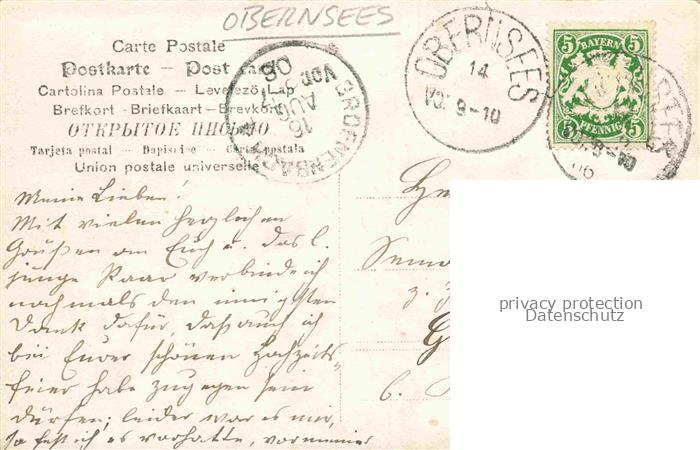 OBERNSEES
Carte Postale
Postkarte - Post card
Cartolina Postale - Levelező-Lap
Brefkort - Briefkaart - Brevkort
ОТКРЫТОЕ ПИСЬМО
Tarjeta postal — Dopisnice — Carta postala
Union postale universelle
GROENENBACH
VOR
16
AUG
06
OBERNSEES
14
VO. 9-10
5 BAYERN 5
5 PFENNIG 5
9-10
06
Meine Lieben!
Mit vielen herzlichen
Grüßen an Euch u. das l.
junge Paar verbinde ich
nochmals den innigsten
Dank dafür, daß auch ich
bei Eurer schönen Hochzeits-
feier habe zugegen sein
dürfen; leider war es mir,
so fest ich es vorhatte,
z.
privacy protection
Datenschutz